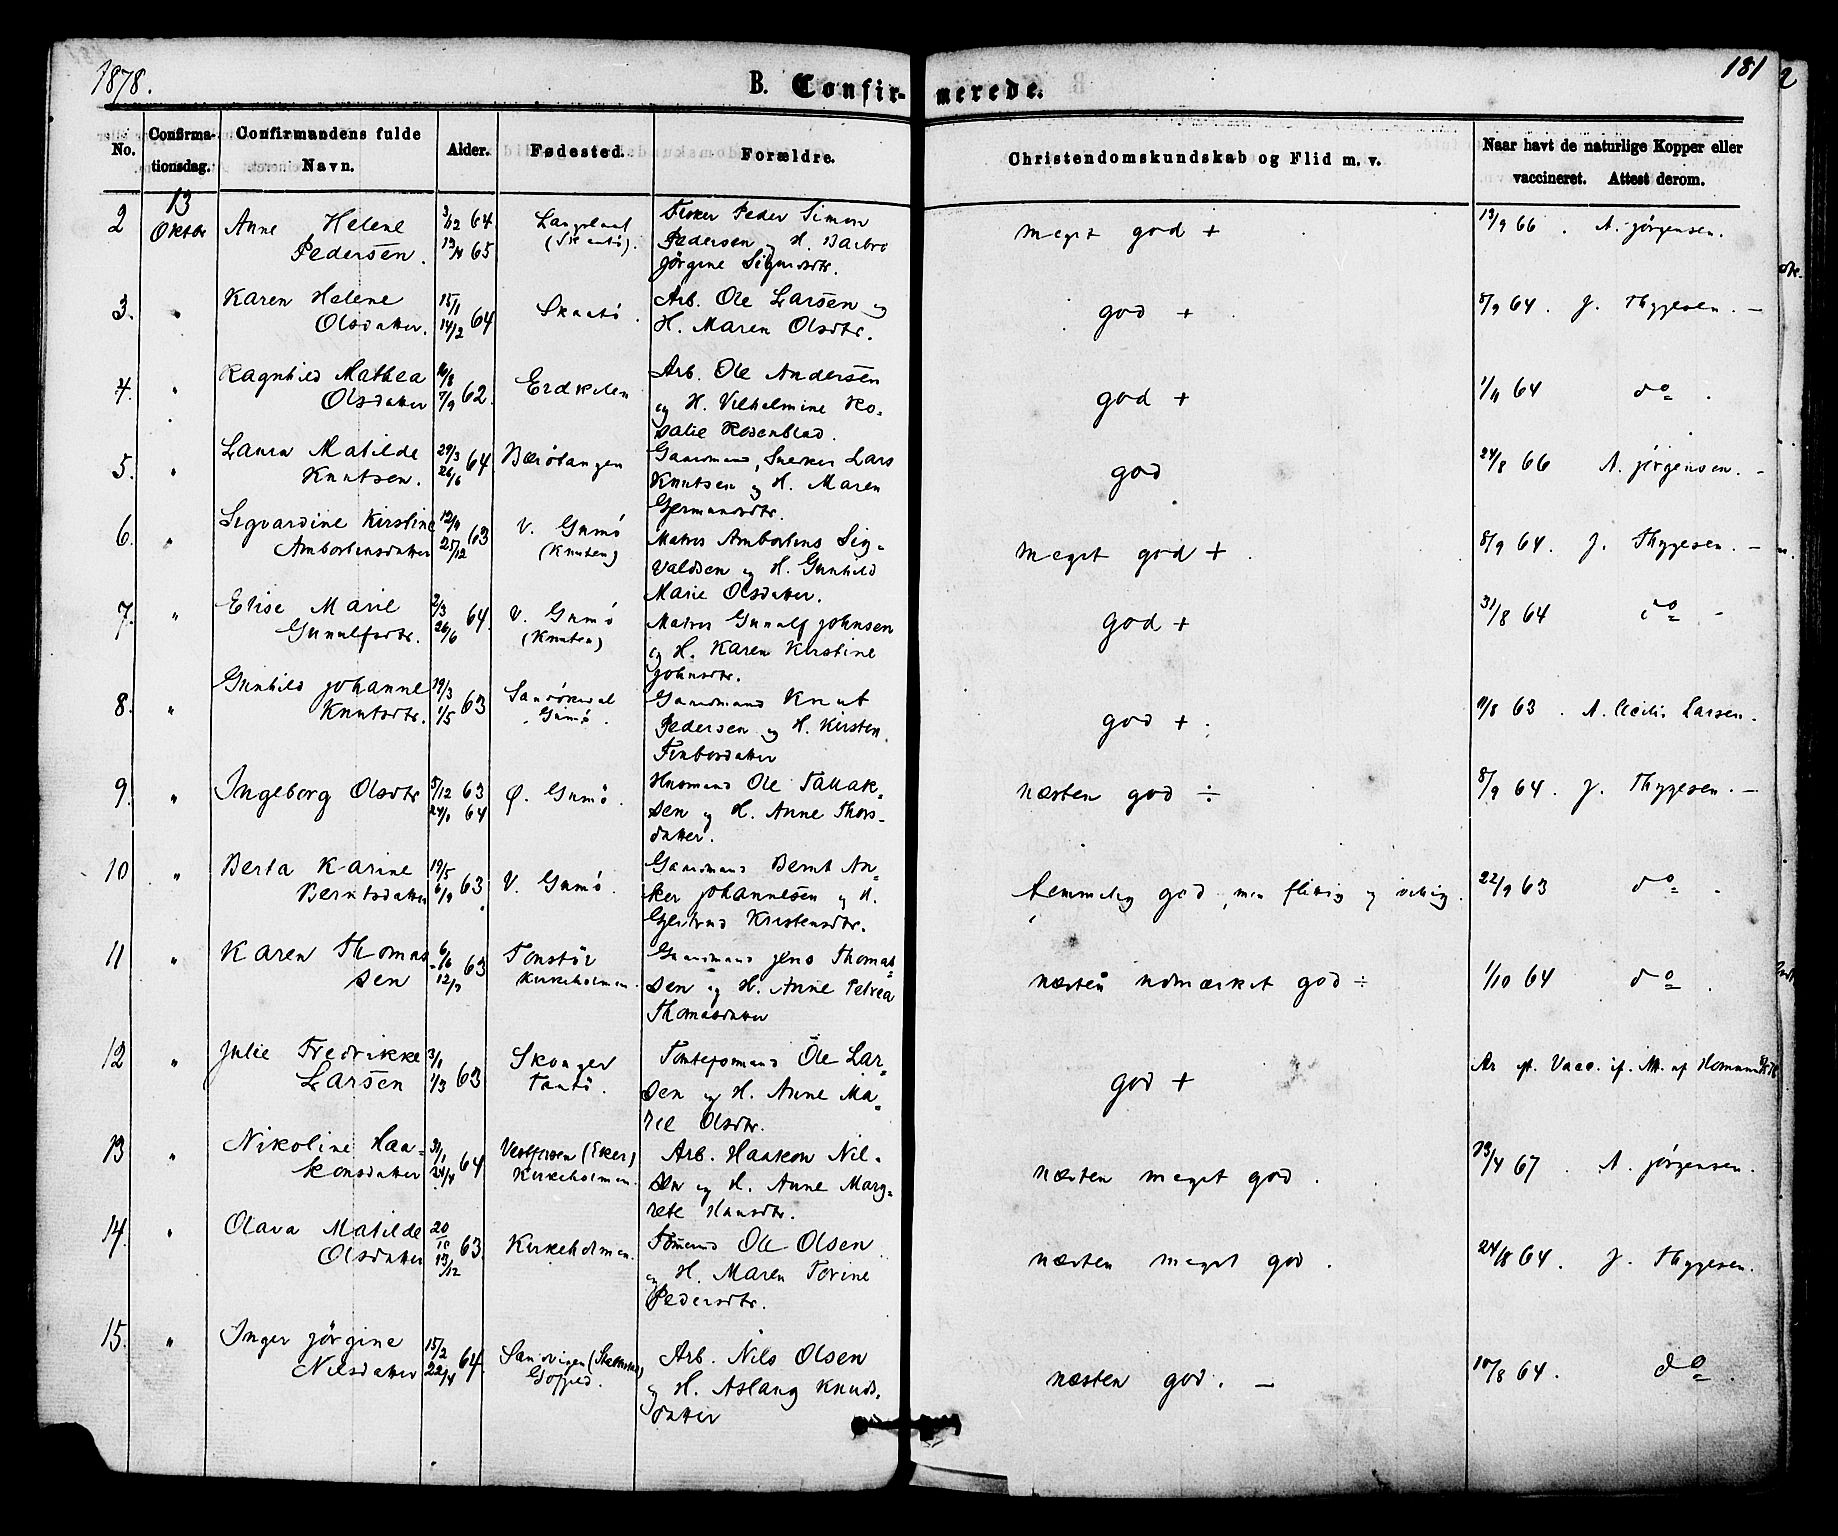 1878.
B. Confir-
merede.
181
No.
Confirma-
tionsdag.
Confirmandens fulde
Navn.
Alder.
Fødested.
Forældre.
Christendomskundskab og Flid m. v.
Naar havt de naturlige Kopper eller
vaccineret. Attest derom.
2
13
Oktbr
Anne Helene
Pedersen.
3/12 64
65
Fisker Peder Simon
Pedersen og H. Barbro
Jörgine Sigurdtr.
meget god +
13/9 66 . A. Jörgensen.
3.
"
Karen Helene
Olsdatter.
15/1
14/2 64
Skaatö.
Arb. Ole Larsen og
H. Maren Olsdtr.
god +
8/9 64. J. Thygesen. —
4.
"
Ragnhild Mathea
Olsdatter
7/9 62.
Arb. Ole Andersen
og H. Vilhelmine Ro-
salie Rosenblad.
god +
64 do .
5.
"
Laura Matilde
Knutsen.
29/3
26/6 64
Bærötangen
Gaardmand, Snekker Lars
Knutsen og H. Maren
Gjermundsdtr.
god
24/8 66 A. Jörgensen. -
6.
"
Sigvardine Kirstine
Ambortensdatter
25/12 63
V. Gumö
(Knuten)
Matros Ambortens Sig-
valdsen og H. Gunhild
Marie Olsdatter.
meget god +
8/9 64. J. Thygesen. -
7.
"
Elise Marie
Gunulfsdtr.
2/3
26/6 64.
V. Gumö
(Knuten)
Matros Gunulf Johnsen
og H. Karen Kirstine
Johnsdtr.
god +
31/8 64 do -
8.
"
Gunhild Johanne
Knutsdtr.
19/3
1/5 63
Gumö.
Gaardmand Knut
Pedersen og H. Kirsten
god +.
11/8 63 . A. Cecilie Larsen.
9.
"
Ingeborg Olsdtr
5/12 63
24/1 64
Ø. Gumö.
Husmand Ole Tallak-
sen og H. Anne Thors-
datter.
næsten god ÷
8/9 64. J. Thygesen. —
10
"
Berta Karine
Berntsdatter
19/5
6/9 63.
V. Gumö.
Gaardmand Bernt An-
ker Johannesen og H.
Gjertrud Kristensdtr.
temmelig god, men flittig og
22/9 63 do .
11
"
Karen Thomas
sen
6/6
63
Kirkeholmen.
Gaardmand Jens Thomas
sen og H. Anne Petrea
Thomasdatter
næsten udmærket god ÷
1/10 64 do .
12
"
Julie Fredrikke
Larsen
3/1
1/3 63
Tomtefæstmand Ole Lar-
sen og H. Anne Ma-
rie Olsdtr.
god +
Vacc.
13
"
Nikoline Haa-
konsdatter
31/1
24/4 64
Kirkeholmen.
Arb. Haakon Nil-
sen og H. Anne Marg-
rete Hansdtr.
næsten meget god .
13/4 67 . A. Jörgensen.
14.
"
Olava Matilde
Olsdatter
20
10
13/12 63.
Kirkeholmen.
Ole Olsen
og H. Maren Torine
Pedersdtr.
næsten meget god .
24/8 64. J. Thygesen.
15.
"
Inger Jörgine
Nilsdatter
15/2
22/4 64.
Arb. Nils Olsen
og H. Aslaug Knuds-
datter
næsten god. —
10/8 64. do .